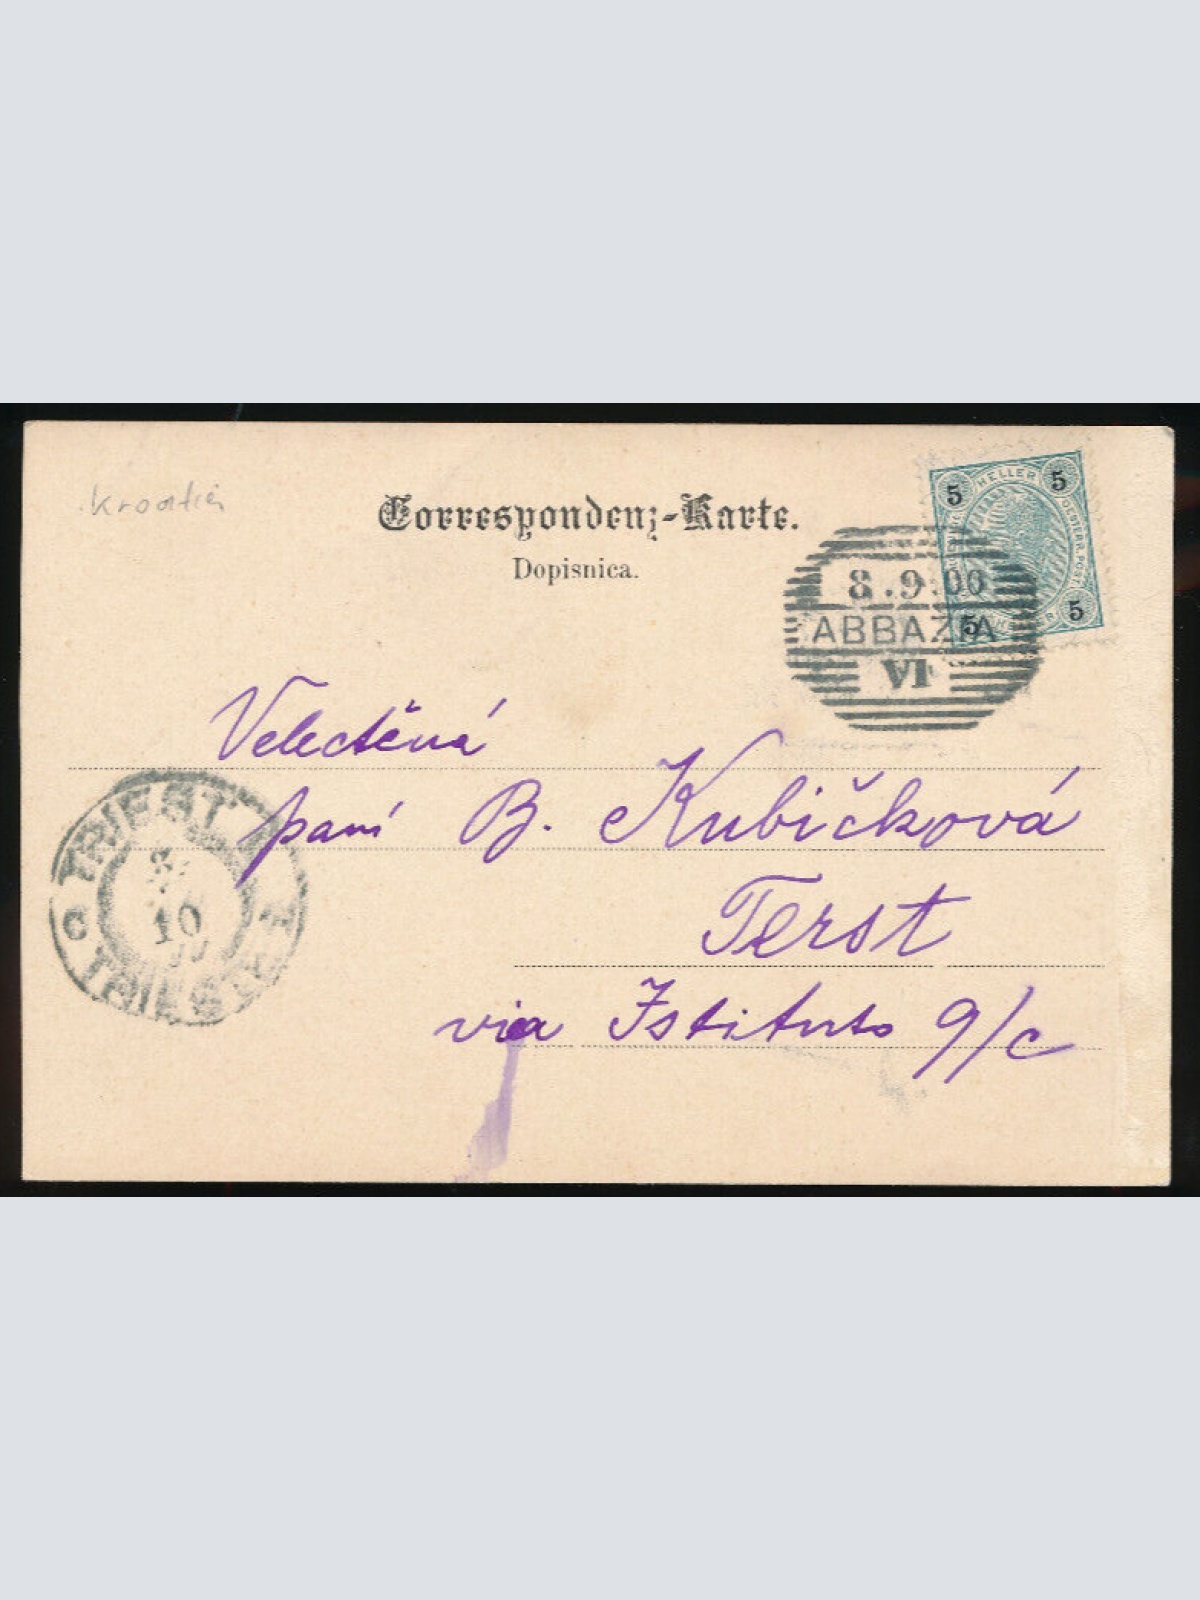 Kroatien
Correspondenz-Karte.
Dopisnica.
5 HELLER 5
OESTERR. POST.
5 HELLER 5
8.9.00
ABBAZIA
VI
Velectěná
paní B. Kubičková
Terst
via Istituto 9/c
TRIEST
8
10
C
TRIEST